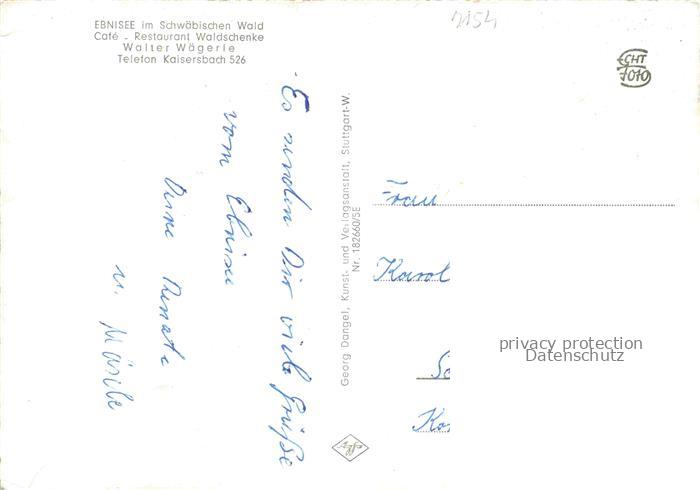 EBNISEE im Schwäbischen Wald
Café - Restaurant Waldschenke
Walter Wägerle
Telefon Kaisersbach 526
7154
ECHT
FOTO
Es senden Dir viele Grüße
vom Ebnisee
Deine Renate
u.
Georg Dangel, Kunst- und Verlagsanstalt, Stuttgart-W.
Nr. 182660/SE
Frau
Karol
Sc
Ko
privacy protection
Datenschutz
Agfa